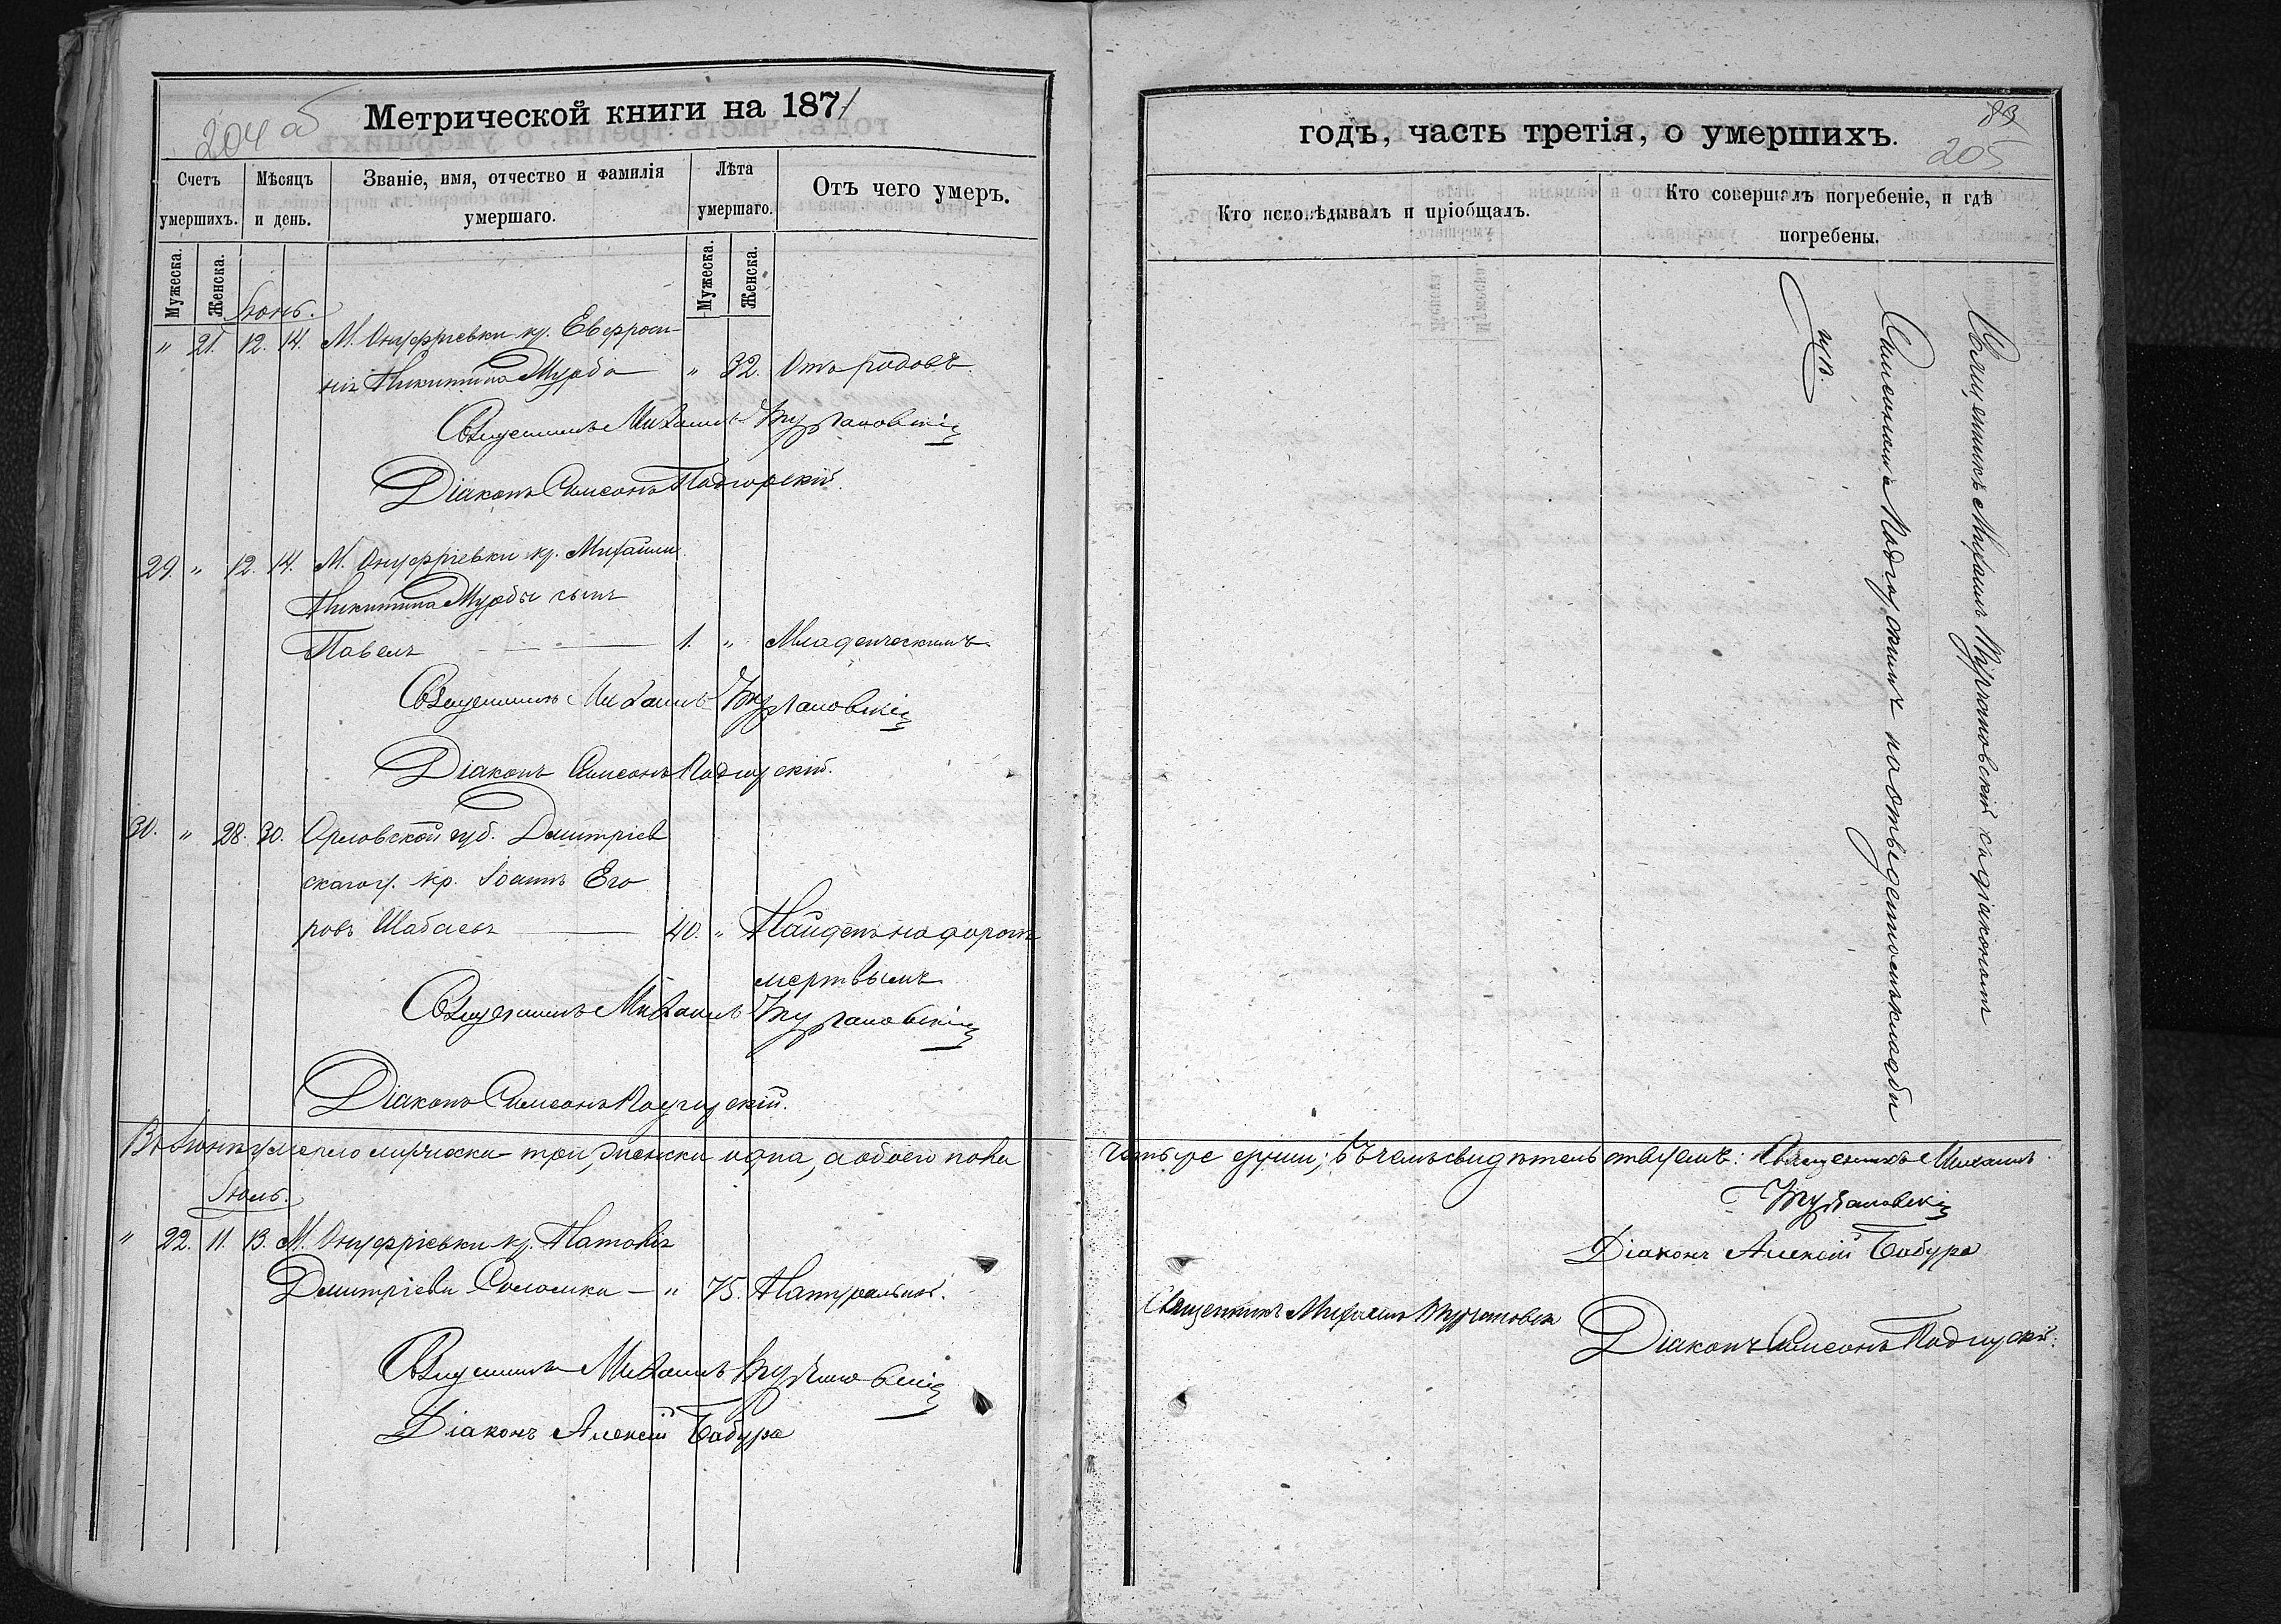 204 об
Метрической книги на 1871
Счетъ умершихъ.
Мѣсяцъ и день.
Званіе, имя, отчество и фамилія умершаго.
Лѣта умершаго.
Отъ чего умеръ.
Мужеска.
Женска.
Мужеска.
Женска.
Іюнь.
" 21. 12. 14. М. Онуфріевки кр. Евфроси-
нія Никитина Мурба " 32. Отъ родовъ.
Священникъ Михаилъ Турчановскій
Діаконъ Симеонъ Подгорскій.
29. " 12. 14. М. Онуфріевки кр. Михаила
Никитина Мурбы сынъ
Павелъ 1. " Младенческимъ.
Священникъ Михаилъ Турчановскій
Діаконъ Симеонъ Подгорскій.
30. " 28. 30. Орловской губ. Дмитріев
скаго у. кр. Іоаннъ Его
ровъ Шабаевъ 40. " Найденъ на дорогѣ
мертвымъ
Священникъ Михаилъ Турчановскій
Діаконъ Симеонъ Подгорскій.
Въ Іюнѣ умерло мужеска три, женска одна, а обоего пола
Іюль.
" 22. 11. 13. М. Онуфріевки кр. Наталія
Дмитріева Соломка — " 75. Натурально.
Священникъ Михаилъ Турчановскій
Діаконъ Алексій Бабура
83
205
годъ, часть третія, о умершихъ.
Кто исповѣдывалъ и пріобщалъ.
Кто совершалъ погребеніе, и гдѣ
погребены.
Священникъ Михаилъ Турчановскій съ діакономъ
Симеономъ Подгорскимъ на отведенномъ кладби
щѣ.
четыре души; въ чемъ свидѣтельствуемъ: Священникъ Михаилъ
Турчановскій
Діаконъ Алексій Бабура
Священникъ Михаилъ Турчановскій
Діаконъ Симеонъ Подгорскій.